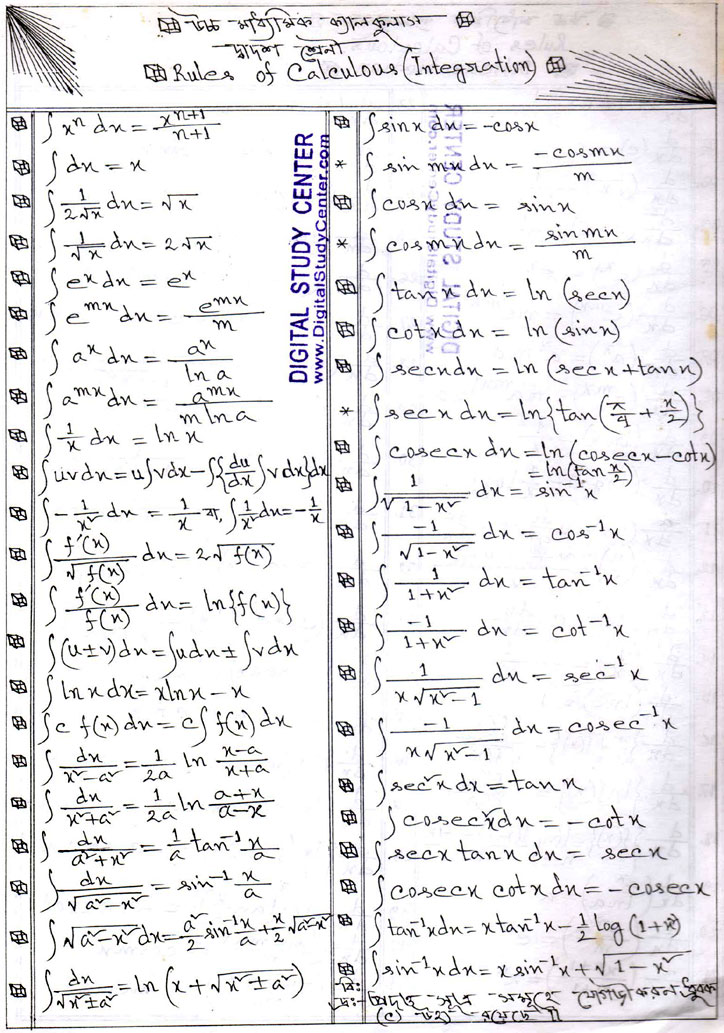 উচ্চ মাধ্যমিক ক্যালকুলাস
দ্বাদশ শ্রেনী
Rules of Calculous (Integration)
∫ xⁿ dx = xⁿ⁺¹/n+1
∫ dx = x
∫ 1/2√x dx = √x
∫ 1/√x dx = 2√x
∫ eˣ dx = eˣ
∫ eᵐˣ dx = eᵐˣ/m
∫ aˣ dx = aˣ/ln a
∫ aᵐˣ dx = aᵐˣ/m ln a
∫ 1/x dx = ln x
∫ uv dx = u∫v dx - ∫{du/dx ∫v dx}dx
∫ -1/x² dx = 1/x বা, ∫ 1/x² dx = -1/x
∫ f'(x)/√f(x) dx = 2√f(x)
∫ f'(x)/f(x) dx = ln{f(x)}
∫ (u±v) dx = ∫u dx ± ∫v dx
∫ ln x dx = x ln x - x
∫ c f(x) dx = c∫ f(x) dx
∫ dx/x²-a² = 1/2a ln x-a/x+a
∫ dx/x²+a² = 1/2a ln a+x/a-x
∫ dx/a²+x² = 1/a tan⁻¹ x/a
∫ dx/√a²-x² = sin⁻¹ x/a
∫ √a²-x² dx = a²/2 sin⁻¹ x/a + x/2 √a²-x²
∫ dx/√x²±a² = ln (x + √x²±a²)
DIGITAL STUDY CENTER
www.DigitalStudyCenter.com
∫ sinx dx = -cosx
* ∫ sin mx dx = -cosmx/m
∫ cosx dx = sinx
* ∫ cosmx dx = sinmx/m
∫ tanx dx = ln (secx)
∫ cotx dx = ln (sinx)
∫ secx dx = ln (secx+tanx)
* ∫ secx dx = ln{tan(π/4 + x/2)}
∫ cosecx dx = ln (cosecx-cotx)
= ln(tan x/2)
∫ 1/√1-x² dx = sin⁻¹x
∫ -1/√1-x² dx = cos⁻¹x
∫ 1/1+x² dx = tan⁻¹x
∫ -1/1+x² dx = cot⁻¹x
∫ 1/x√x²-1 dx = sec⁻¹x
∫ -1/x√x²-1 dx = cosec⁻¹x
∫ sec²x dx = tanx
∫ cosec²x dx = -cotx
∫ secx tanx dx = secx
∫ cosecx cotx dx = -cosecx
∫ tan⁻¹x dx = x tan⁻¹x - 1/2 log (1+x²)
∫ sin⁻¹x dx = x sin⁻¹x + √1-x²